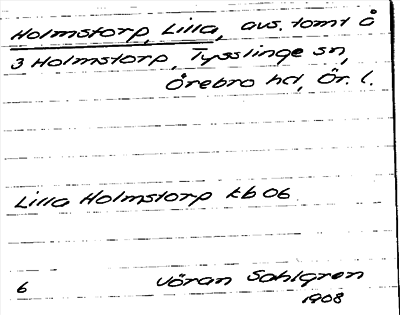 Holmstorp, Lilla, avs. tomt å
3 Holmstorp, Tysslinge sn,
Örebro hd, Ör. l.
Lilla Holmstorp kb 06
6 Jöran Sahlgren
1908